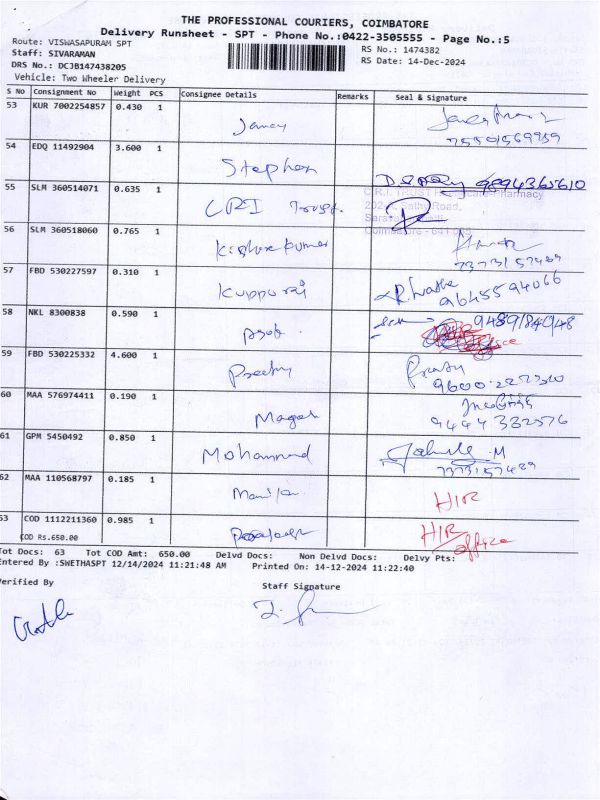 THE PROFESSIONAL COURIERS, COIMBATORE
Delivery Runsheet - SPT - Phone No.:0422-3505555 - Page No.:5
Route: VISWASAPURAM SPT
Staff: SIVARAMAN
DRS No.: DCJB147438205
Vehicle: Two Wheeler Delivery
RS No.: 1474382
RS Date: 14-Dec-2024
S No Consignment No Weight PCS Consignee Details Remarks Seal & Signature
53 KUR 7002254857 0.430 1 Jancy
54 EDQ 11492904 3.600 1 Stephen 9894365610
55 SLM 360514071 0.635 1 CRI Trust.
C.R.I. TRUST Pharmacy
Road,
56 SLM 360518060 0.765 1 Kishore kumar 7373157489
57 FBD 530227597 0.310 1 Kuppuraj 9645594066
58 NKL 8300838 0.590 1 9489184048
59 FBD 530225332 4.600 1 Preethy 9600227320
60 MAA 576974411 0.190 1 Magesh 9444332576
61 GPM 5450492 0.850 1 Mohammed 7373157489
62 MAA 110568797 0.185 1 HIR
63 COD 1112211360 0.985 1 HIR office
COD Rs.650.00
Tot Docs: 63 Tot COD Amt: 650.00 Delvd Docs: Non Delvd Docs: Delvy Pts:
Entered By :SWETHASPT 12/14/2024 11:21:48 AM Printed On: 14-12-2024 11:22:40
Verified By Staff Signature